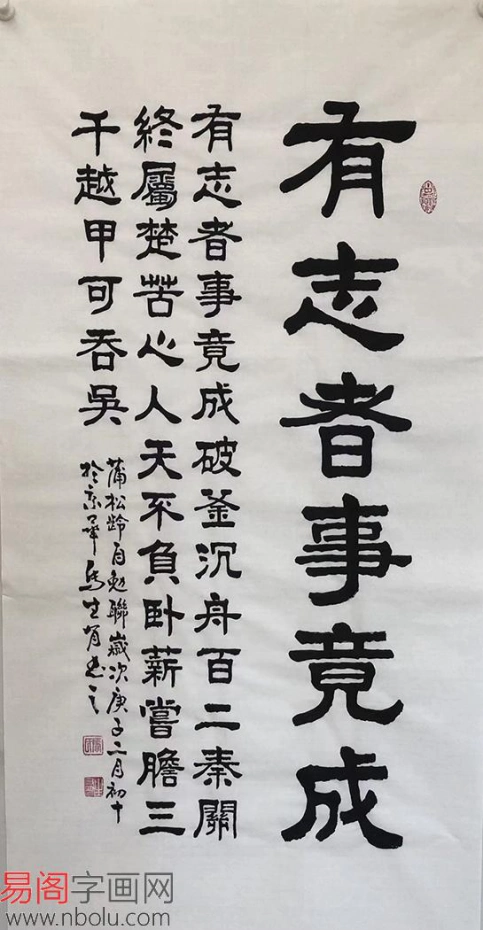 有志者事竟成
有志者事竟成破釜沉舟百二秦關
終屬楚苦心人天不負卧薪嘗膽三
千越甲可吞吳
蒲松龄自勉聯歲次庚子二月初十
於京華馬生肖书之
易阁字画网
www.nbolu.com